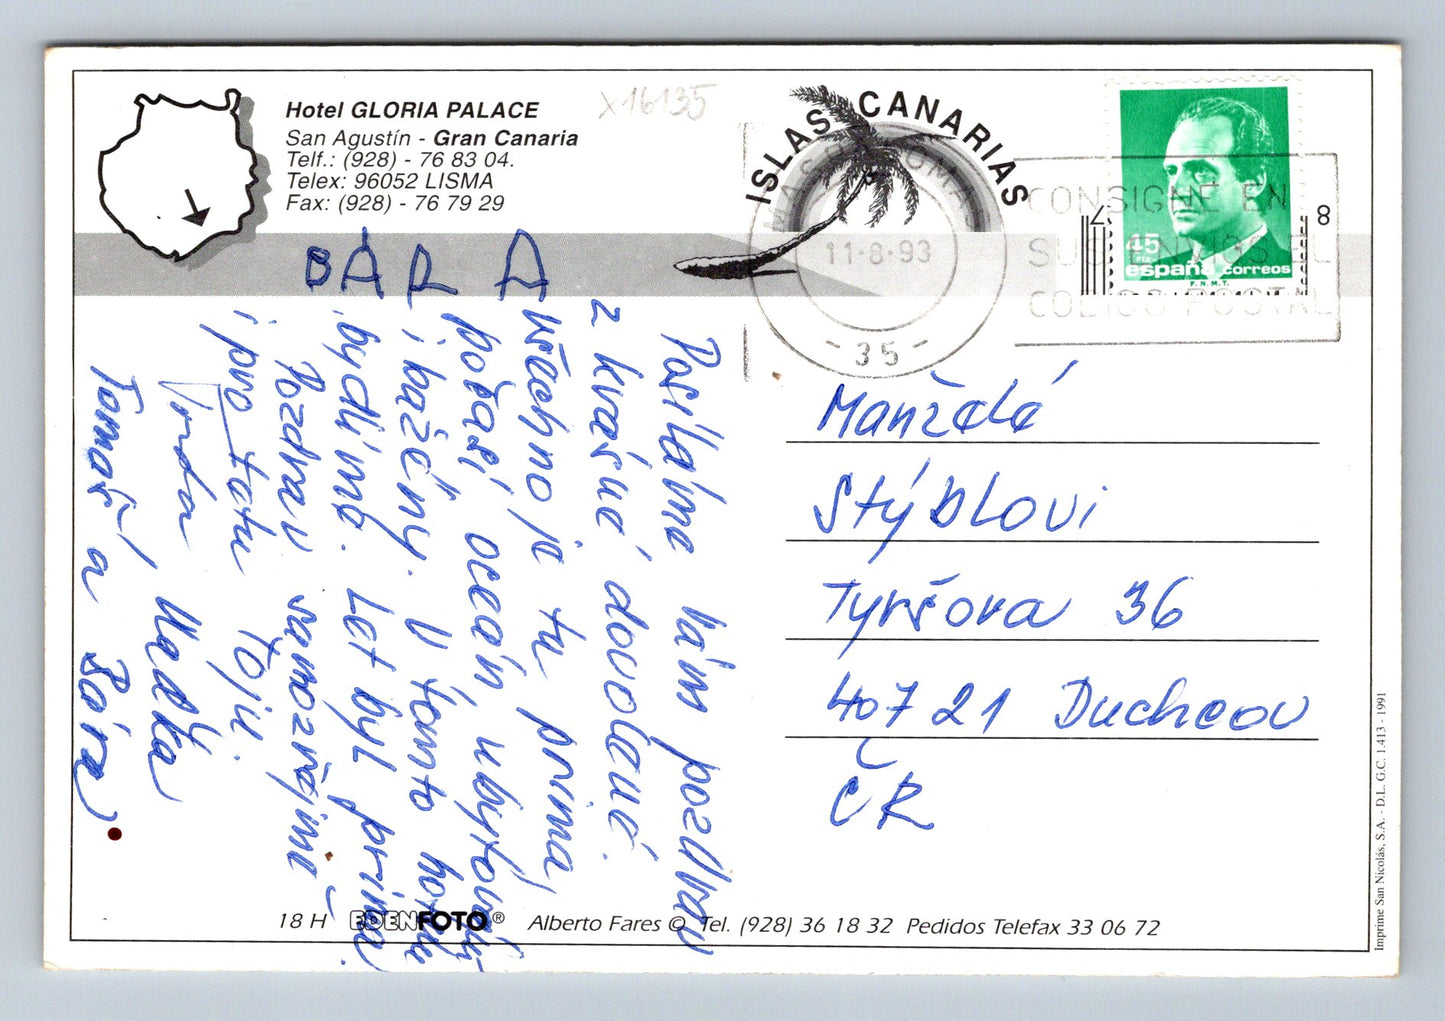 Hotel GLORIA PALACE
San Agustín - Gran Canaria
Telf.: (928) - 76 83 04.
Telex: 96052 LISMA
Fax: (928) - 76 79 29
X16135
ISLAS CANARIAS
11-8-93
- 35 -
CONSIGNE EN
SUS ENVIOS EL
CODIGO POSTAL
7 8
45
PTA
españa correos
F.N.M.T.
Posíláme Vám pozdrav
z krásné dovolené.
Všechno je tu prima,
počasí, oceán, ubytování
i bazény. V tomto hotelu
bydlíme. Let byl prima.
Pozdrav samozřejmě
i pro tetu Tojii.
Vrda Uadka
Tomáš a Bára
BÁRA
Manželé
Stýblovi
Tyršova 36
407 21 Duchcov
ČR
18 H EDENFOTO® Alberto Fares © Tel. (928) 36 18 32 Pedidos Telefax 33 06 72
Imprime San Nicolás, S.A. - D.L. G.C. 1.413 - 1991